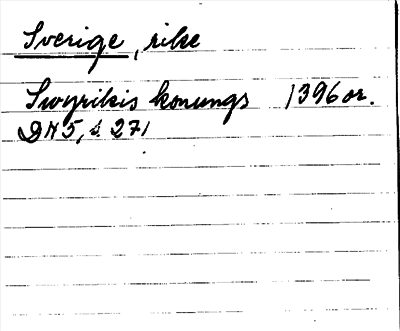 Sverige, rike
Swyrikis konungs 1396 or.
DN 5, s 271